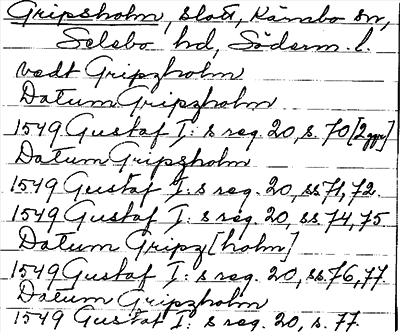 Gripsholm, slott, Kärnbo sn,
Selebo hd, Söderm. l.
vedt Gripzholm
Datum Gripzholm
1549 Gustaf I: s reg. 20, s. 70 [2 ggr]
Datum Gripzholm
1549 Gustaf I: s reg. 20, ss 71, 72.
1549 Gustaf I: s reg. 20, ss 74, 75
Datum Gripz[holm]
1549 Gustaf I: s reg. 20, ss 76, 77.
Datum Gripzholm
1549 Gustaf I: s reg. 20, s. 77.